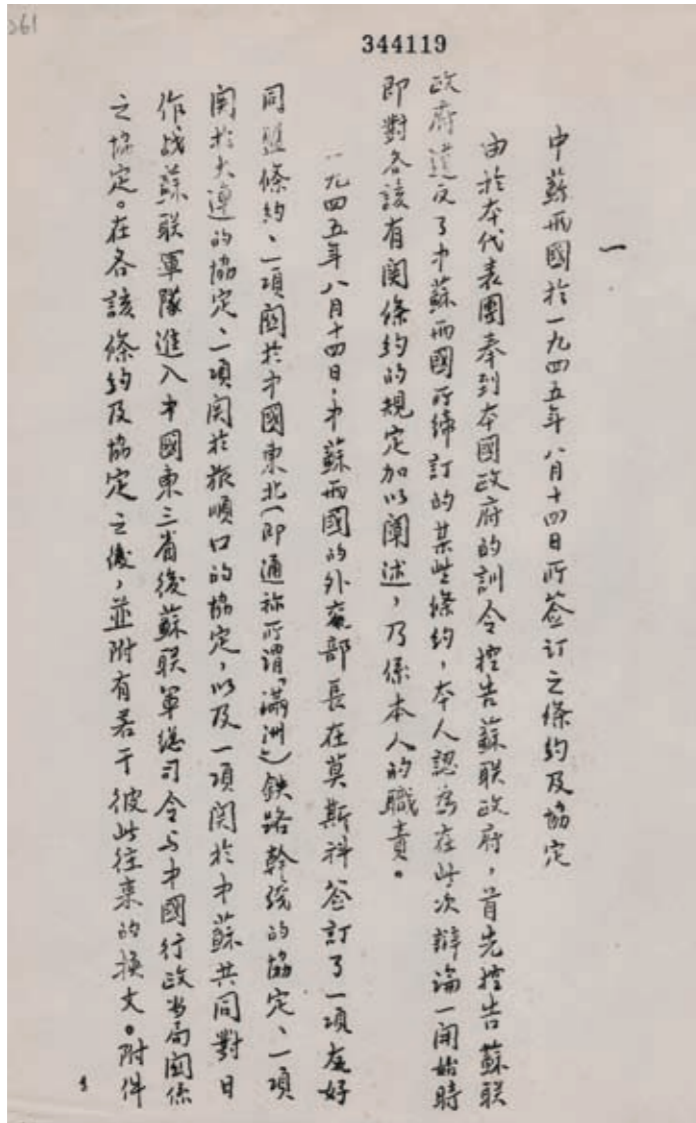 261
344119
一
中蘇兩國於一九四五年八月十四日所签訂之條約及協定
由於本代表團奉到本國政府的訓令控告蘇联政府，首先控告蘇联
政府違反了中蘇兩國所締訂的某些條約，本人認為在此次辯論一開始時
即對各該有関條約的規定加以闡述，乃係本人的職責。
一九四五年八月十四日，中蘇兩國的外交部長在莫斯科签訂了一項友好
同盟條約、一項関於中國東北（即通称所謂「滿洲」）鉄路幹線的協定、一項
関於大連的協定、一項関於旅順口的協定，以及一項関於中蘇共同對日
作战蘇联軍隊進入中國東三省後蘇联軍總司令与中國行政当局関係
之協定。在各該條約及協定之後，並附有若干彼此往來的換文。附件
1